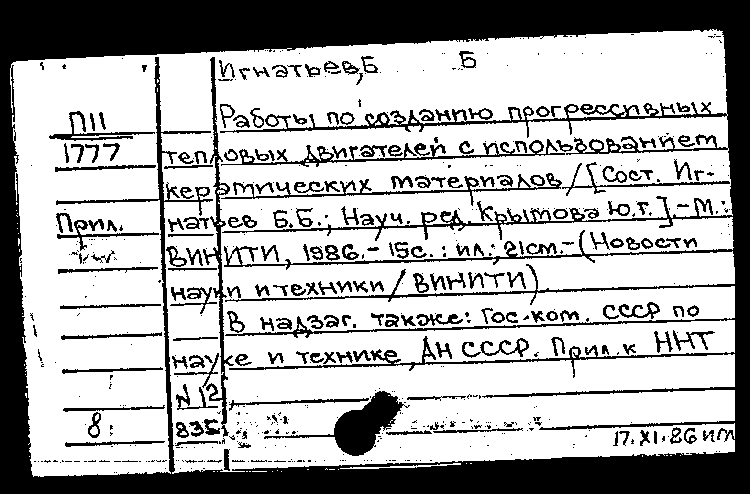 Игнатьев, Б Б
П11 Работы по созданию прогрессивных
1777 тепловых двигателей с использованием
керамических материалов / [Сост. Иг-
Прил. натьев Б.Б.; Науч. ред. Крымова Ю.Г.]. - М.:
ВИНИТИ, 1986. - 15с. : ил.; 21см. - (Новости
науки и техники / ВИНИТИ).
В надзаг. также: Гос. ком. СССР по
науке и технике, АН СССР. Прил. к ННТ
N 12.
8 835
17.XI.86